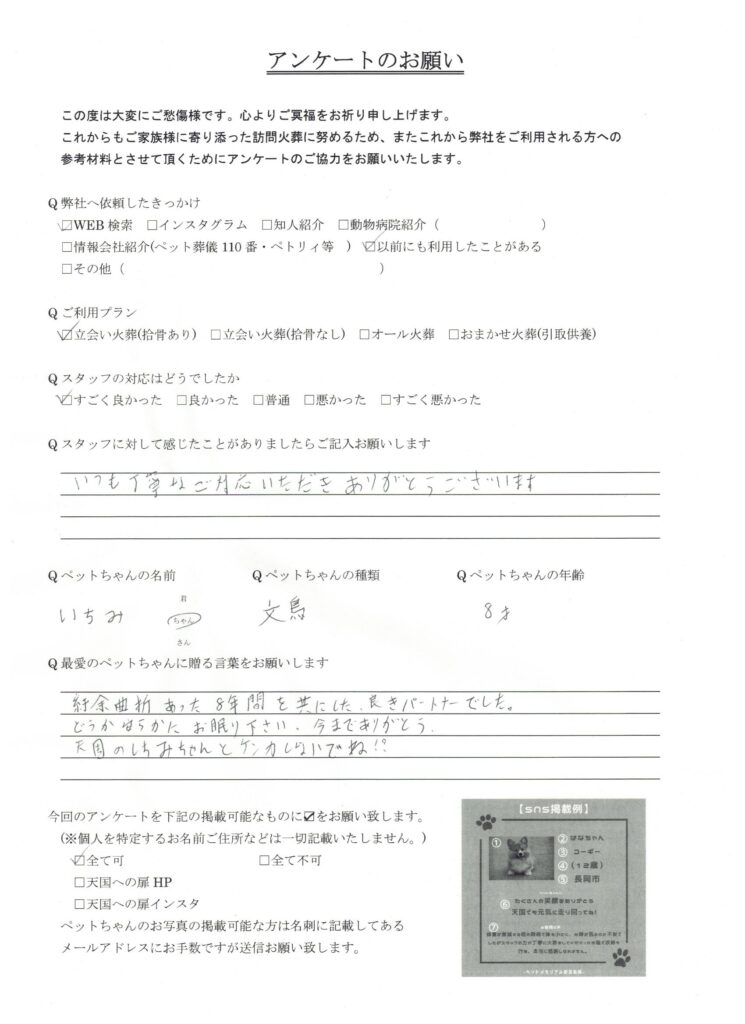 アンケートのお願い
この度は大変にご愁傷様です。心よりご冥福をお祈り申し上げます。
これからもご家族様に寄り添った訪問火葬に努めるため、またこれから弊社をご利用される方への
参考材料とさせて頂くためにアンケートのご協力をお願いいたします。
Q 弊社へ依頼したきっかけ
☑WEB 検索 □インスタグラム □知人紹介 □動物病院紹介（ ）
□情報会社紹介(ペット葬儀 110 番・ペトリィ等 ) ☑以前にも利用したことがある
□その他（ ）
Q ご利用プラン
☑立会い火葬(拾骨あり) □立会い火葬(拾骨なし) □オール火葬 □おまかせ火葬(引取供養)
Q スタッフの対応はどうでしたか
☑すごく良かった □良かった □普通 □悪かった □すごく悪かった
Q スタッフに対して感じたことがありましたらご記入お願いします
いつも丁寧なご対応いただきありがとうございます
Q ペットちゃんの名前 Q ペットちゃんの種類 Q ペットちゃんの年齢
君
いちみ ちゃん 文鳥 8才
さん
Q 最愛のペットちゃんに贈る言葉をお願いします
紆余曲折あった8年間を共にした、良きパートナーでした。
どうか安らかにお眠り下さい、今までありがとう。
天国のしちみちゃんとケンカしないでね!!
今回のアンケートを下記の掲載可能なものに☑をお願い致します。
(※個人を特定するお名前ご住所などは一切記載いたしません。)
☑全て可 □全て不可
□天国への扉 HP
□天国への扉インスタ
ペットちゃんのお写真の掲載可能な方は名刺に記載してある
メールアドレスにお手数ですが送信お願い致します。
【sns掲載例】
①
② はなちゃん
③ コーギー
④ (12歳)
⑤ 長岡市
⑥ たくさんの笑顔をありがとう
天国でも元気に走り回ってね!
⑦